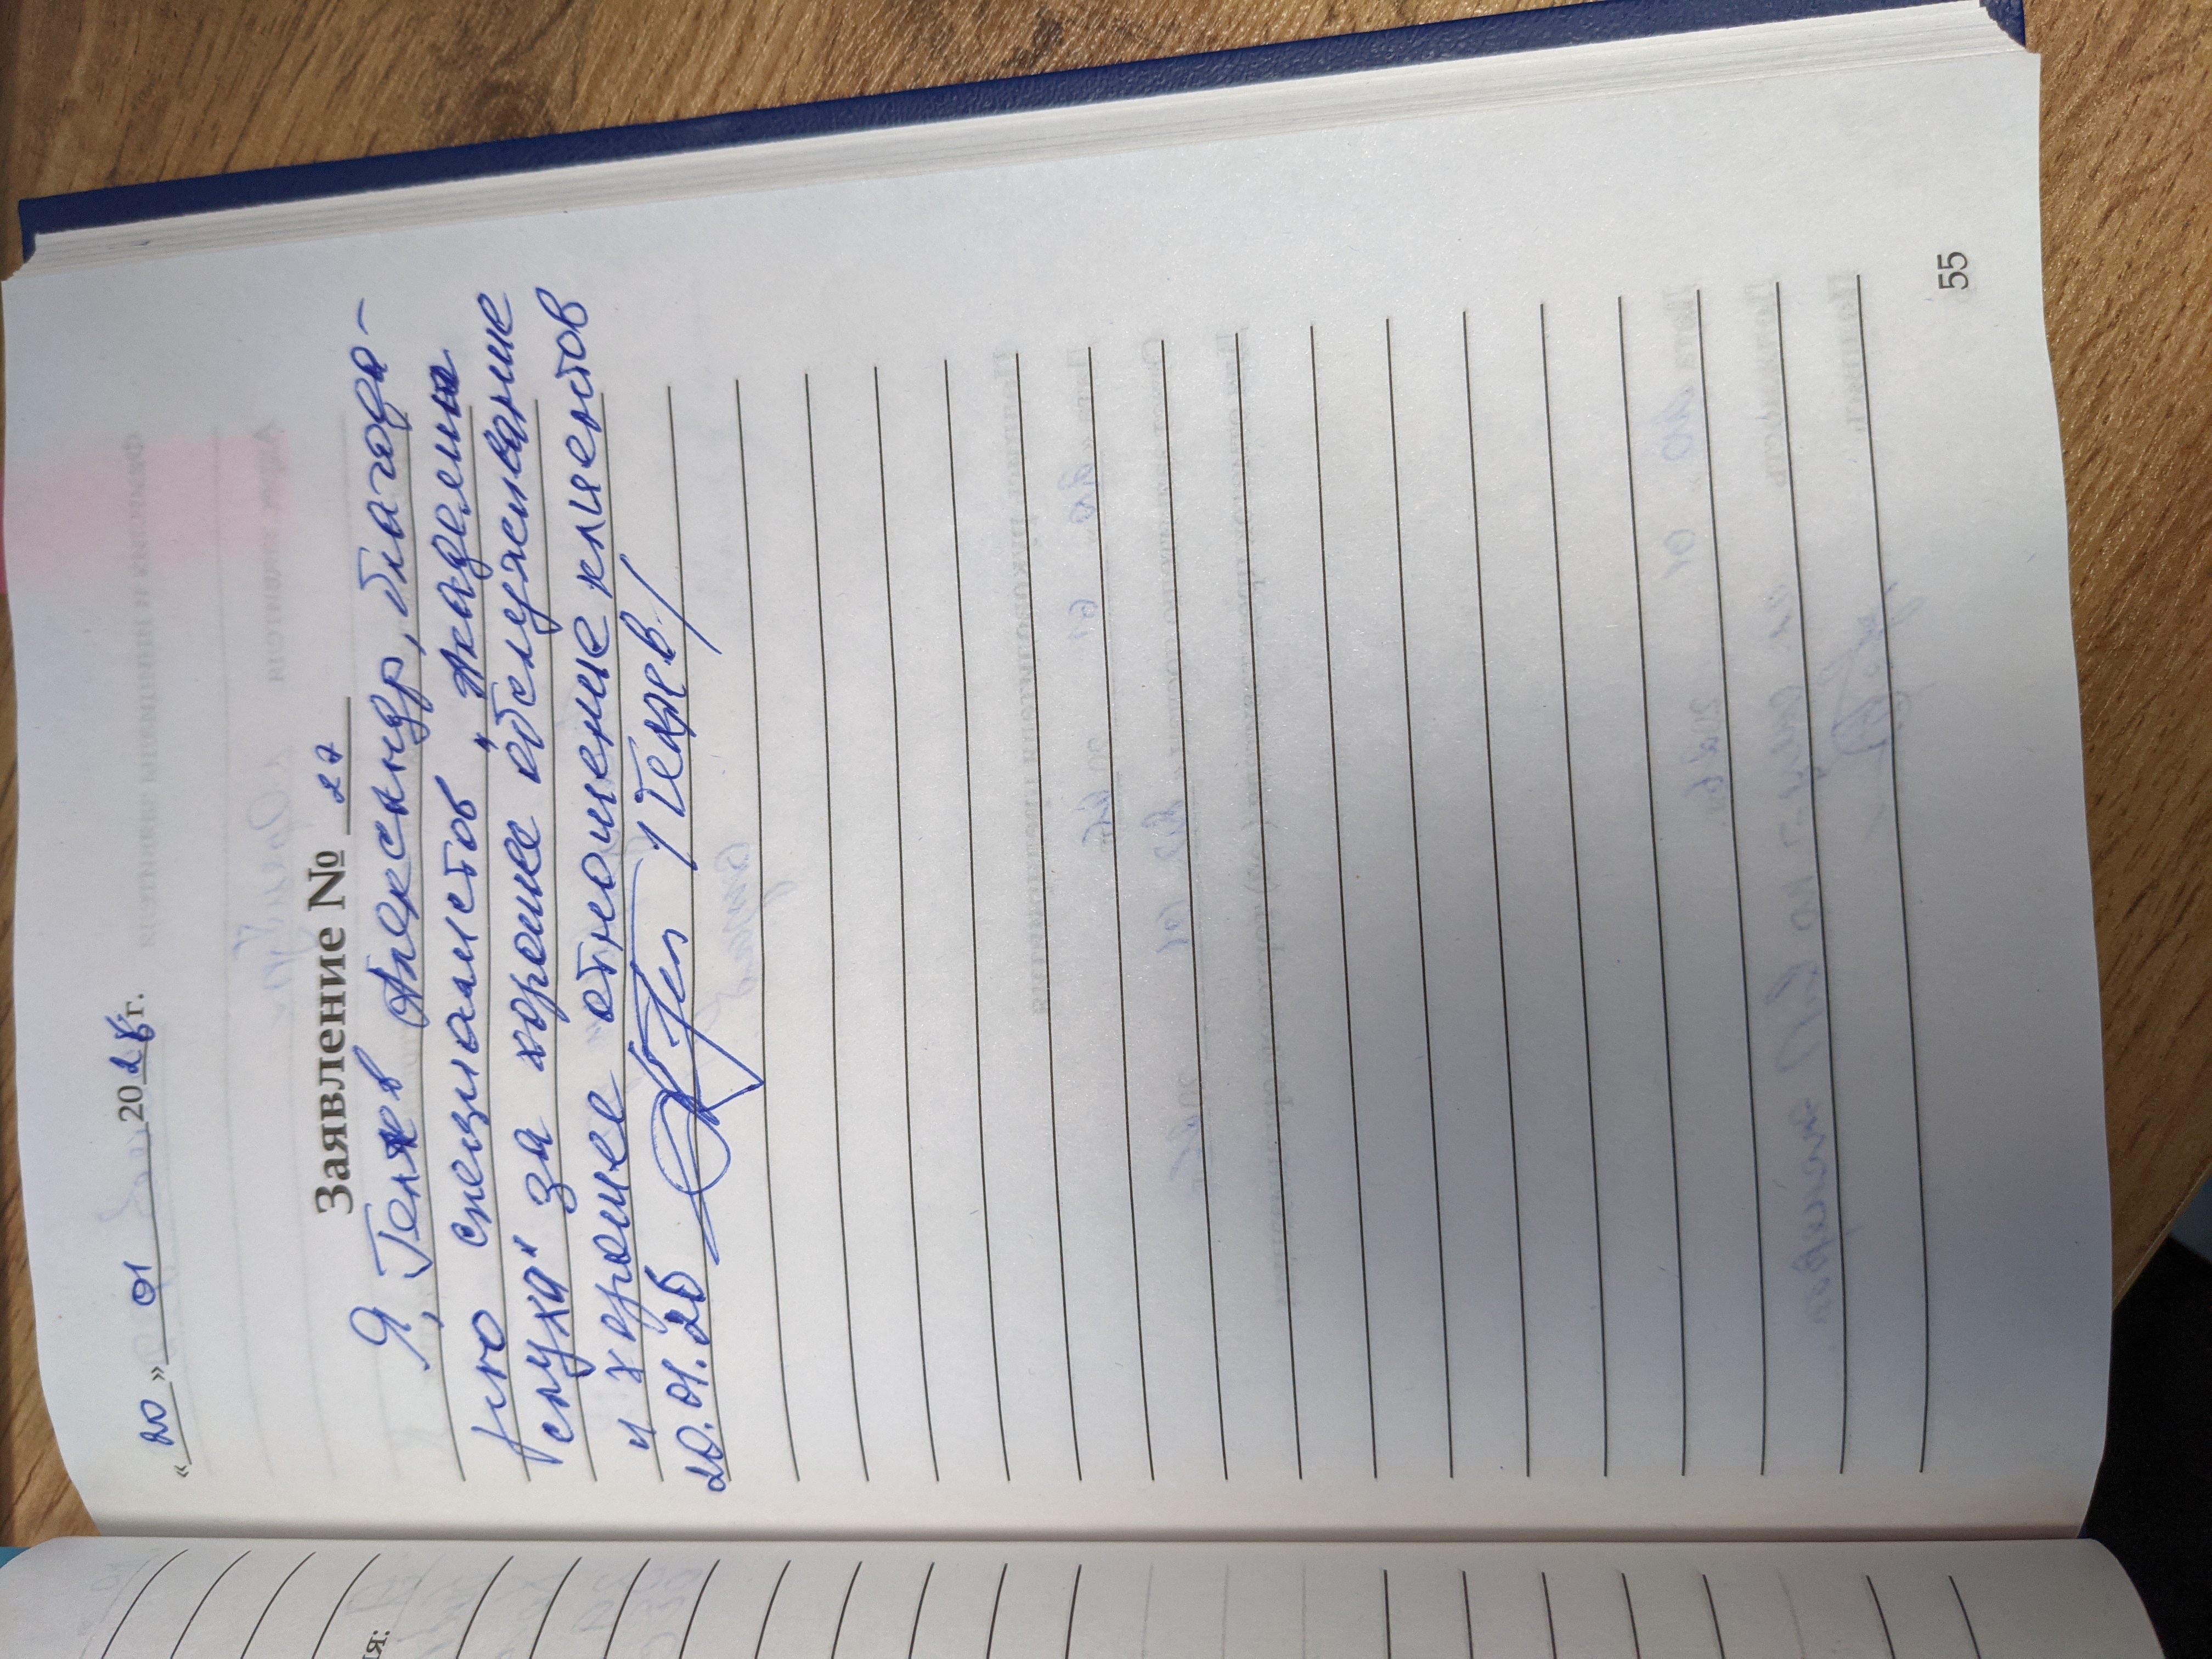 «20» 01 2026 г.
Заявление № 27
Я, Геляев Александр, благода-
рю специалистов "Академия
слуха" за хорошее обслуживание
и хорошее отношение клиентов
20.01.26 /Геляев/
55